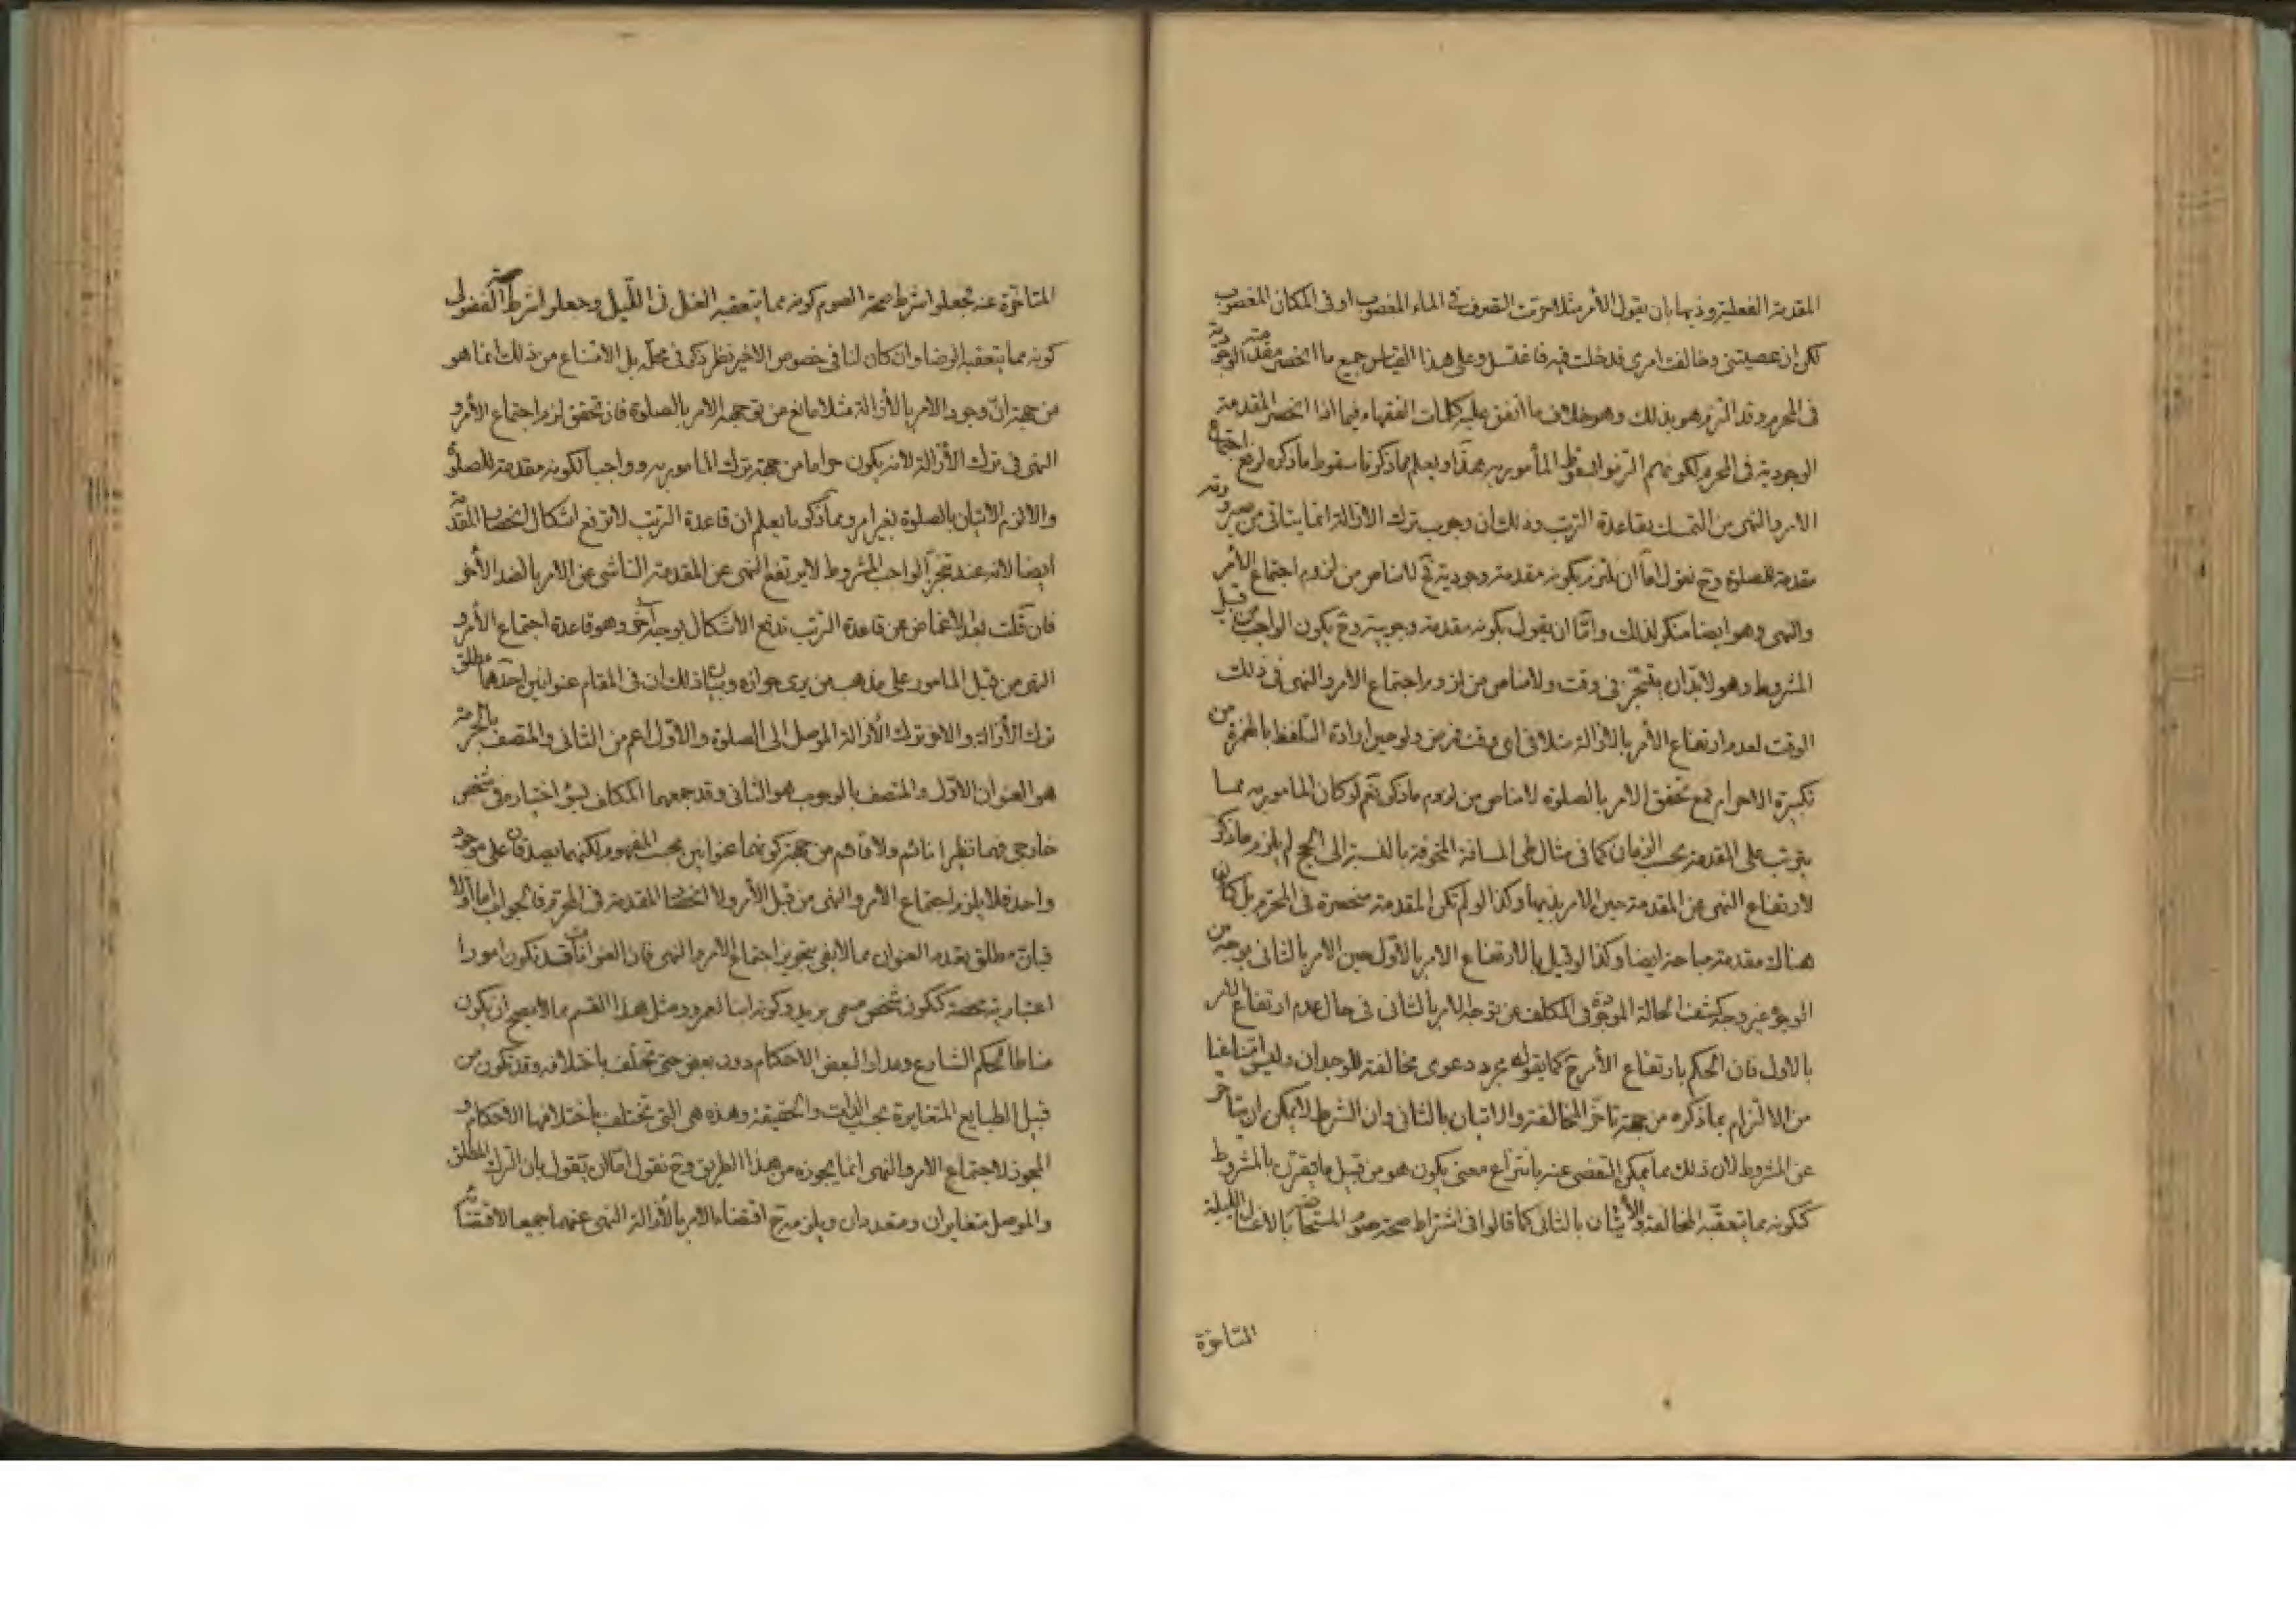 المقدمة الفعلية وذيها بان يقول الأمر مثلا حرمت التصرف في الماء المغصوب او في المكان المغصوب
لكن ان عصيتني وخالفت امري فدخلت فيه فاغتسل وعلى هذا القياس جميع ما انحصر مقدمته الوجودية
في المحرم وقد التزم هو بذلك وهو خلاف ما اتفق عليه كلمات الفقهاء فيما اذا انحصر المقدمة
الوجودية في المحرم لكونهم التزموا بسقوط المأمور به هذا ويعلم بما ذكرنا سقوط ما ذكره لرفع اجتماع
الامر والنهي من التمسك بقاعدة الترتب وذلك ان وجوب ترك الازالة انما يتاتى من صيرورته
مقدمة للصلوة وح نقول اما ان يلتزم بكونه مقدمة وجودية فح لا مناص من لزوم اجتماع الأمر
والنهي وهو ايضا منكر لذلك واما ان يقول بكونه مقدمة وجوبية وح يكون الواجب من قبيل
المشروط وهو لا بد ان يتنجز في وقت ولا مناص من لزوم اجتماع الامر والنهي في ذلك
الوقت لعدم ارتفاع الأمر بالازالة مثلا في اي وقت فرض ولو حين ارادة التلفظ بالهمزة من
تكبيرة الاحرام فمع تحقق الامر بالصلوة لا مناص من لزوم ما ذكر نعم لو كان المامور به مما
يترتب على المقدمة بحسب الزمان كما في مثال طي المسافة المخوفة بالنسبة الى الحج لم يلزم ما ذكر
لارتفاع النهي عن المقدمة حين الامر بذيها وكذا لو لم تكن المقدمة منحصرة في المحرم بل كان
هناك مقدمة مباحة ايضا وكذا لو قيل بالارتفاع الامر بالاول حين الامر بالثاني بوجه من
الوجوه غير وجه كشف الحالة الموجودة في المكلف عن توجه الامر بالثاني في حال عدم ارتفاع الامر
بالاول فان الحكم بارتفاع الأمر ح كما يقوله مجرد دعوى مخالفة للوجدان وليس امتناعنا
من الالتزام بما ذكره من جهة تاخر المخالفة والاتيان بالثاني وان الشرط لا يمكن ان يتأخر
عن المشروط لان ذلك مما يمكن التفصي عنه بانتزاع معنى يكون هو من قبيل ما يقترن بالمشروط
ككونه مما يتعقبه المخالفة والاتيان بالثاني كما قالوا في اشتراط صحة صوم المستحاضة بالاغسال الليلية
المتاخرة
المتاخرة عنه فجعلوا شرط صحة الصوم كونه مما يتعقبه الغسل في الليل وجعلوا شرط صحة الفضولي
كونه مما يتعقبه الرضا وان كان لنا في خصوص الاخير نظر ذكر في محله بل الامتناع من ذلك انما هو
من جهة ان وجود الامر بالازالة مثلا مانع من توجه الامر بالصلوة فان تحقق لزم اجتماع الأمر و
النهي في ترك الازالة لانه يكون حراما من جهة ترك المامور به وواجبا لكونه مقدمة للصلوة
والا لزم الاتيان بالصلوة بغير امر ومما ذكرنا يعلم ان قاعدة الترتب لا ترفع اشكال انحصار المقدمة
ايضا لانه عند تنجز الواجب المشروط لا يرتفع النهي عن المقدمة الناشي عن الامر بالضد الأخر
فان قلت بعد الاغماض عن قاعدة الترتب ندفع الاشكال بوجه آخر وهو قاعدة اجتماع الأمر و
النهي من قبل المامور على مذهب من يرى جوازه وبيان ذلك ان في المقام عنوانين احدهما مطلق
ترك الازالة والاخر ترك الأزالة الموصل الى الصلوة والاول اعم من الثاني والمتصف بالحرمة
هو العنوان الاول والمتصف بالوجوب هو الثاني وقد جمعهما المكلف بسوء اختياره في شخص
خارجي فهما نظيرا نائم ولا قائم من جهة كونهما عنوانين بحسب المفهوم لكنهما يصدقان على موجود
واحد فلا يلزم اجتماع الأمر والنهي من قبل الأمر ولا انحصار المقدمة في المحرم فالجواب اما اولا
فبان مطلق تعدد العنوان مما لا يفي بتجويز اجتماع الامر والنهي فان العنوانات قد تكون امورا
اعتبارية محضة ككون شخص مسمى بزيد وكونه ابنا لعمرو ومثل هذا القسم مما لا يصح ان يكون
مناطا لحكم الشارع ومدارا لبعض الاحكام دون بعض حتى تختلف باختلافه وقد تكون من
قبيل الطبايع المتغايرة بحسب الذات والحقيقة وهذه هي التي تختلف باختلافها الاحكام و
المجوز لاجتماع الامر والنهي انما يجوزه من هذا الطريق وح نقول اما ان تقول بان الترك المطلق
والموصل متغايران ومتعددان ويلزم ح اقتضاء الامر بالأزالة النهي عنهما جميعا لاقتضائه